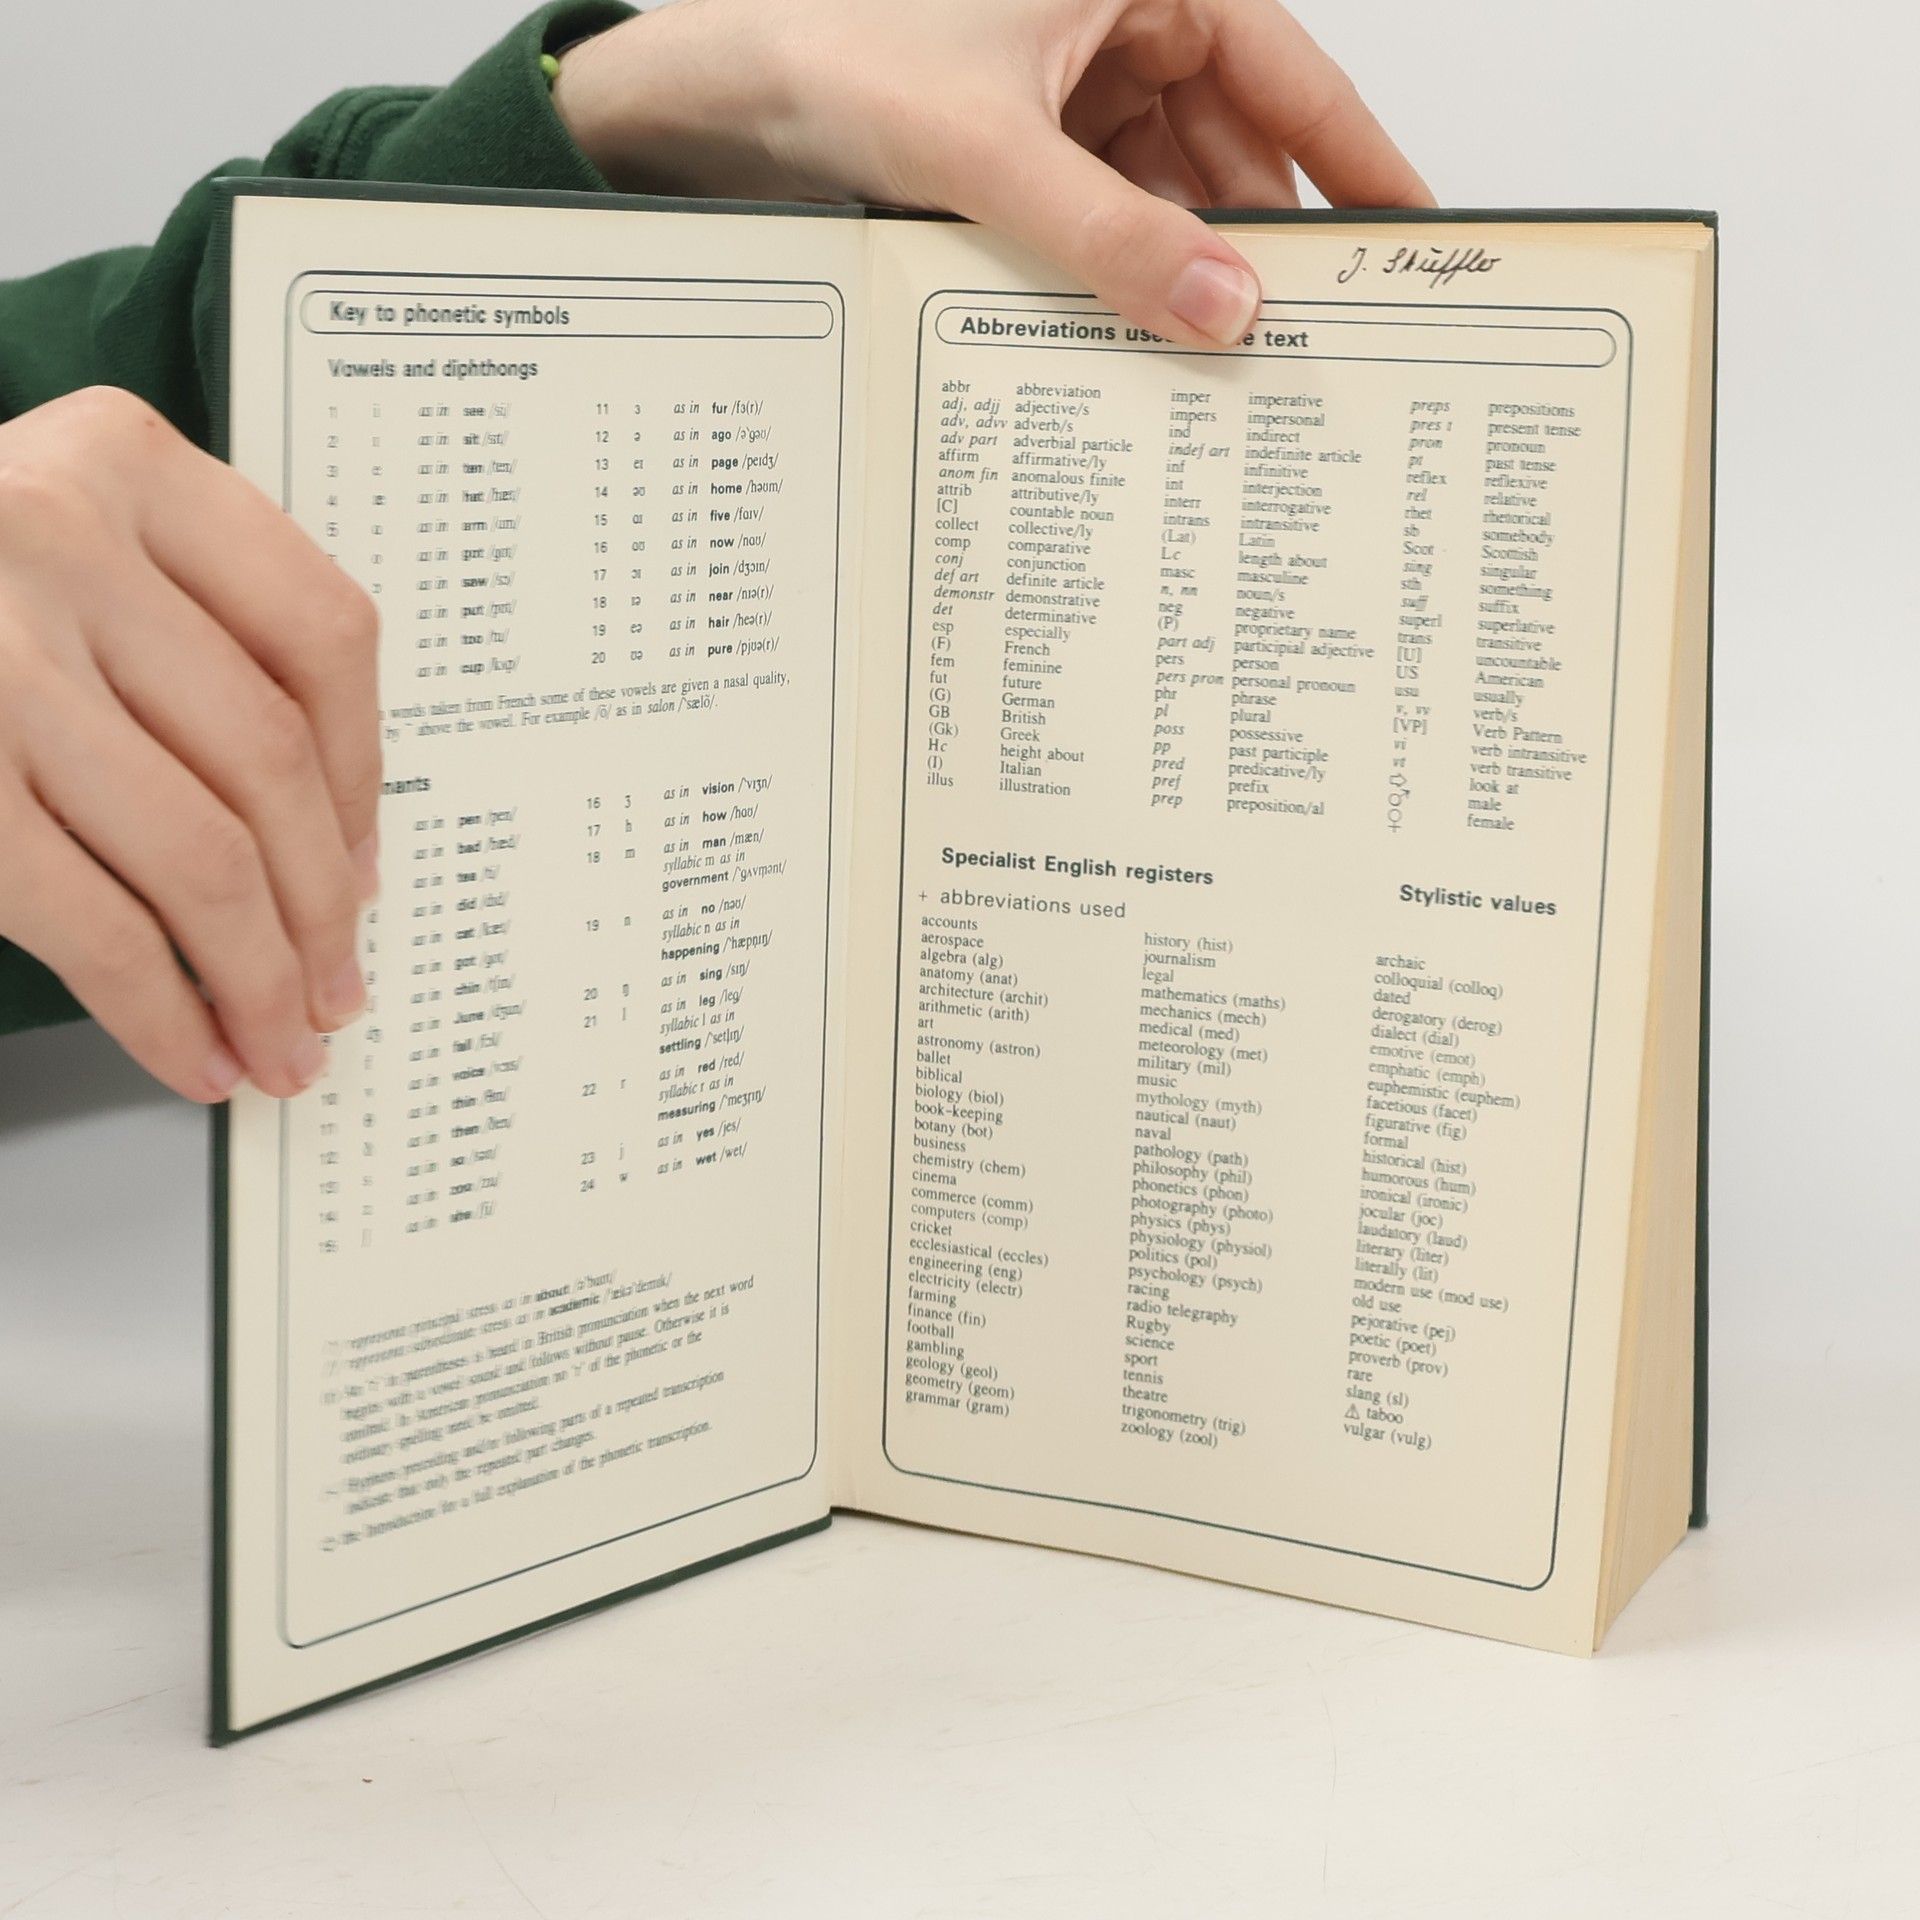 Key to phonetic symbols
Vowels and diphthongs
as in see
as in sit
as in ten
as in hat
as in arm
as in got
as in saw
as in put
as in too
as in cup
11 ɜ as in fur /fɜ(r)/
12 ə as in ago /əˈgəʊ/
13 eɪ as in page /peɪdʒ/
14 əʊ as in home /həʊm/
15 ɑɪ as in five /fɑɪv/
16 ɑʊ as in now /nɑʊ/
17 ɔɪ as in join /dʒɔɪn/
18 ɪə as in near /nɪə(r)/
19 eə as in hair /heə(r)/
20 ʊə as in pure /pjʊə(r)/
words taken from French some of these vowels are given a nasal quality,
by ~ above the vowel. For example /õ/ as in salon /ˈsælõ/.
nants
as in pen /pen/
as in bad /bæd/
as in tea /ti/
as in did /dɪd/
as in cat /kæt/
as in got /gɒt/
as in chin /tʃɪn/
as in June /dʒun/
as in fall /fɔl/
as in voice /vɔɪs/
as in thin /θɪn/
as in then /ðen/
as in so /səʊ/
as in zoo /zu/
as in she /ʃi/
16 ʒ as in vision /ˈvɪʒn/
17 h as in how /hɑʊ/
18 m as in man /mæn/
syllabic m as in
government /ˈgʌvm̩ənt/
19 n as in no /nəʊ/
syllabic n as in
happening /ˈhæpn̩ɪŋ/
20 ŋ as in sing /sɪŋ/
21 l as in leg /leg/
syllabic l as in
settling /ˈsetl̩ɪŋ/
22 r as in red /red/
syllabic r as in
measuring /ˈmeʒr̩ɪŋ/
23 j as in yes /jes/
24 w as in wet /wet/
represents principal stress as in about /əˈbaʊt/
represents subordinate stress as in academic /ˌækəˈdemɪk/
in parentheses is heard in British pronunciation when the next word
begins with a vowel sound and follows without pause. Otherwise it is
omitted. In American pronunciation no 'r' of the phonetic or the
ordinary spelling must be omitted.
Hyphens preceding and/or following parts of a repeated transcription
indicate that only the repeated part changes.
the Introduction for a full explanation of the phonetic transcription.
J. Stüffler
Abbreviations use e text
abbr abbreviation
adj, adjj adjective/s
adv, advv adverb/s
adv part adverbial particle
affirm affirmative/ly
anom fin anomalous finite
attrib attributive/ly
[C] countable noun
collect collective/ly
comp comparative
conj conjunction
def art definite article
demonstr demonstrative
det determinative
esp especially
(F) French
fem feminine
fut future
(G) German
GB British
(Gk) Greek
Hc height about
(I) Italian
illus illustration
imper imperative
impers impersonal
ind indirect
indef art indefinite article
inf infinitive
int interjection
interr interrogative
intrans intransitive
(Lat) Latin
Lc length about
masc masculine
n, nn noun/s
neg negative
(P) proprietary name
part adj participial adjective
pers person
pers pron personal pronoun
phr phrase
pl plural
poss possessive
pp past participle
pred predicative/ly
pref prefix
prep preposition/al
preps prepositions
pres t present tense
pron pronoun
pt past tense
reflex reflexive
rel relative
rhet rhetorical
sb somebody
Scot Scottish
sing singular
sth something
suff suffix
superl superlative
trans transitive
[U] uncountable
US American
usu usually
v, vv verb/s
[VP] Verb Pattern
vi verb intransitive
vt verb transitive
⇨ look at
♂ male
♀ female
Specialist English registers
+ abbreviations used
accounts
aerospace
algebra (alg)
anatomy (anat)
architecture (archit)
arithmetic (arith)
art
astronomy (astron)
ballet
biblical
biology (biol)
book-keeping
botany (bot)
business
chemistry (chem)
cinema
commerce (comm)
computers (comp)
cricket
ecclesiastical (eccles)
engineering (eng)
electricity (electr)
farming
finance (fin)
football
gambling
geology (geol)
geometry (geom)
grammar (gram)
history (hist)
journalism
legal
mathematics (maths)
mechanics (mech)
medical (med)
meteorology (met)
military (mil)
music
mythology (myth)
nautical (naut)
naval
pathology (path)
philosophy (phil)
phonetics (phon)
photography (photo)
physics (phys)
physiology (physiol)
politics (pol)
psychology (psych)
racing
radio telegraphy
Rugby
science
sport
tennis
theatre
trigonometry (trig)
zoology (zool)
Stylistic values
archaic
colloquial (colloq)
dated
derogatory (derog)
dialect (dial)
emotive (emot)
emphatic (emph)
euphemistic (euphem)
facetious (facet)
figurative (fig)
formal
historical (hist)
humorous (hum)
ironical (ironic)
jocular (joc)
laudatory (laud)
literary (liter)
literally (lit)
modern use (mod use)
old use
pejorative (pej)
poetic (poet)
proverb (prov)
rare
slang (sl)
⚠ taboo
vulgar (vulg)